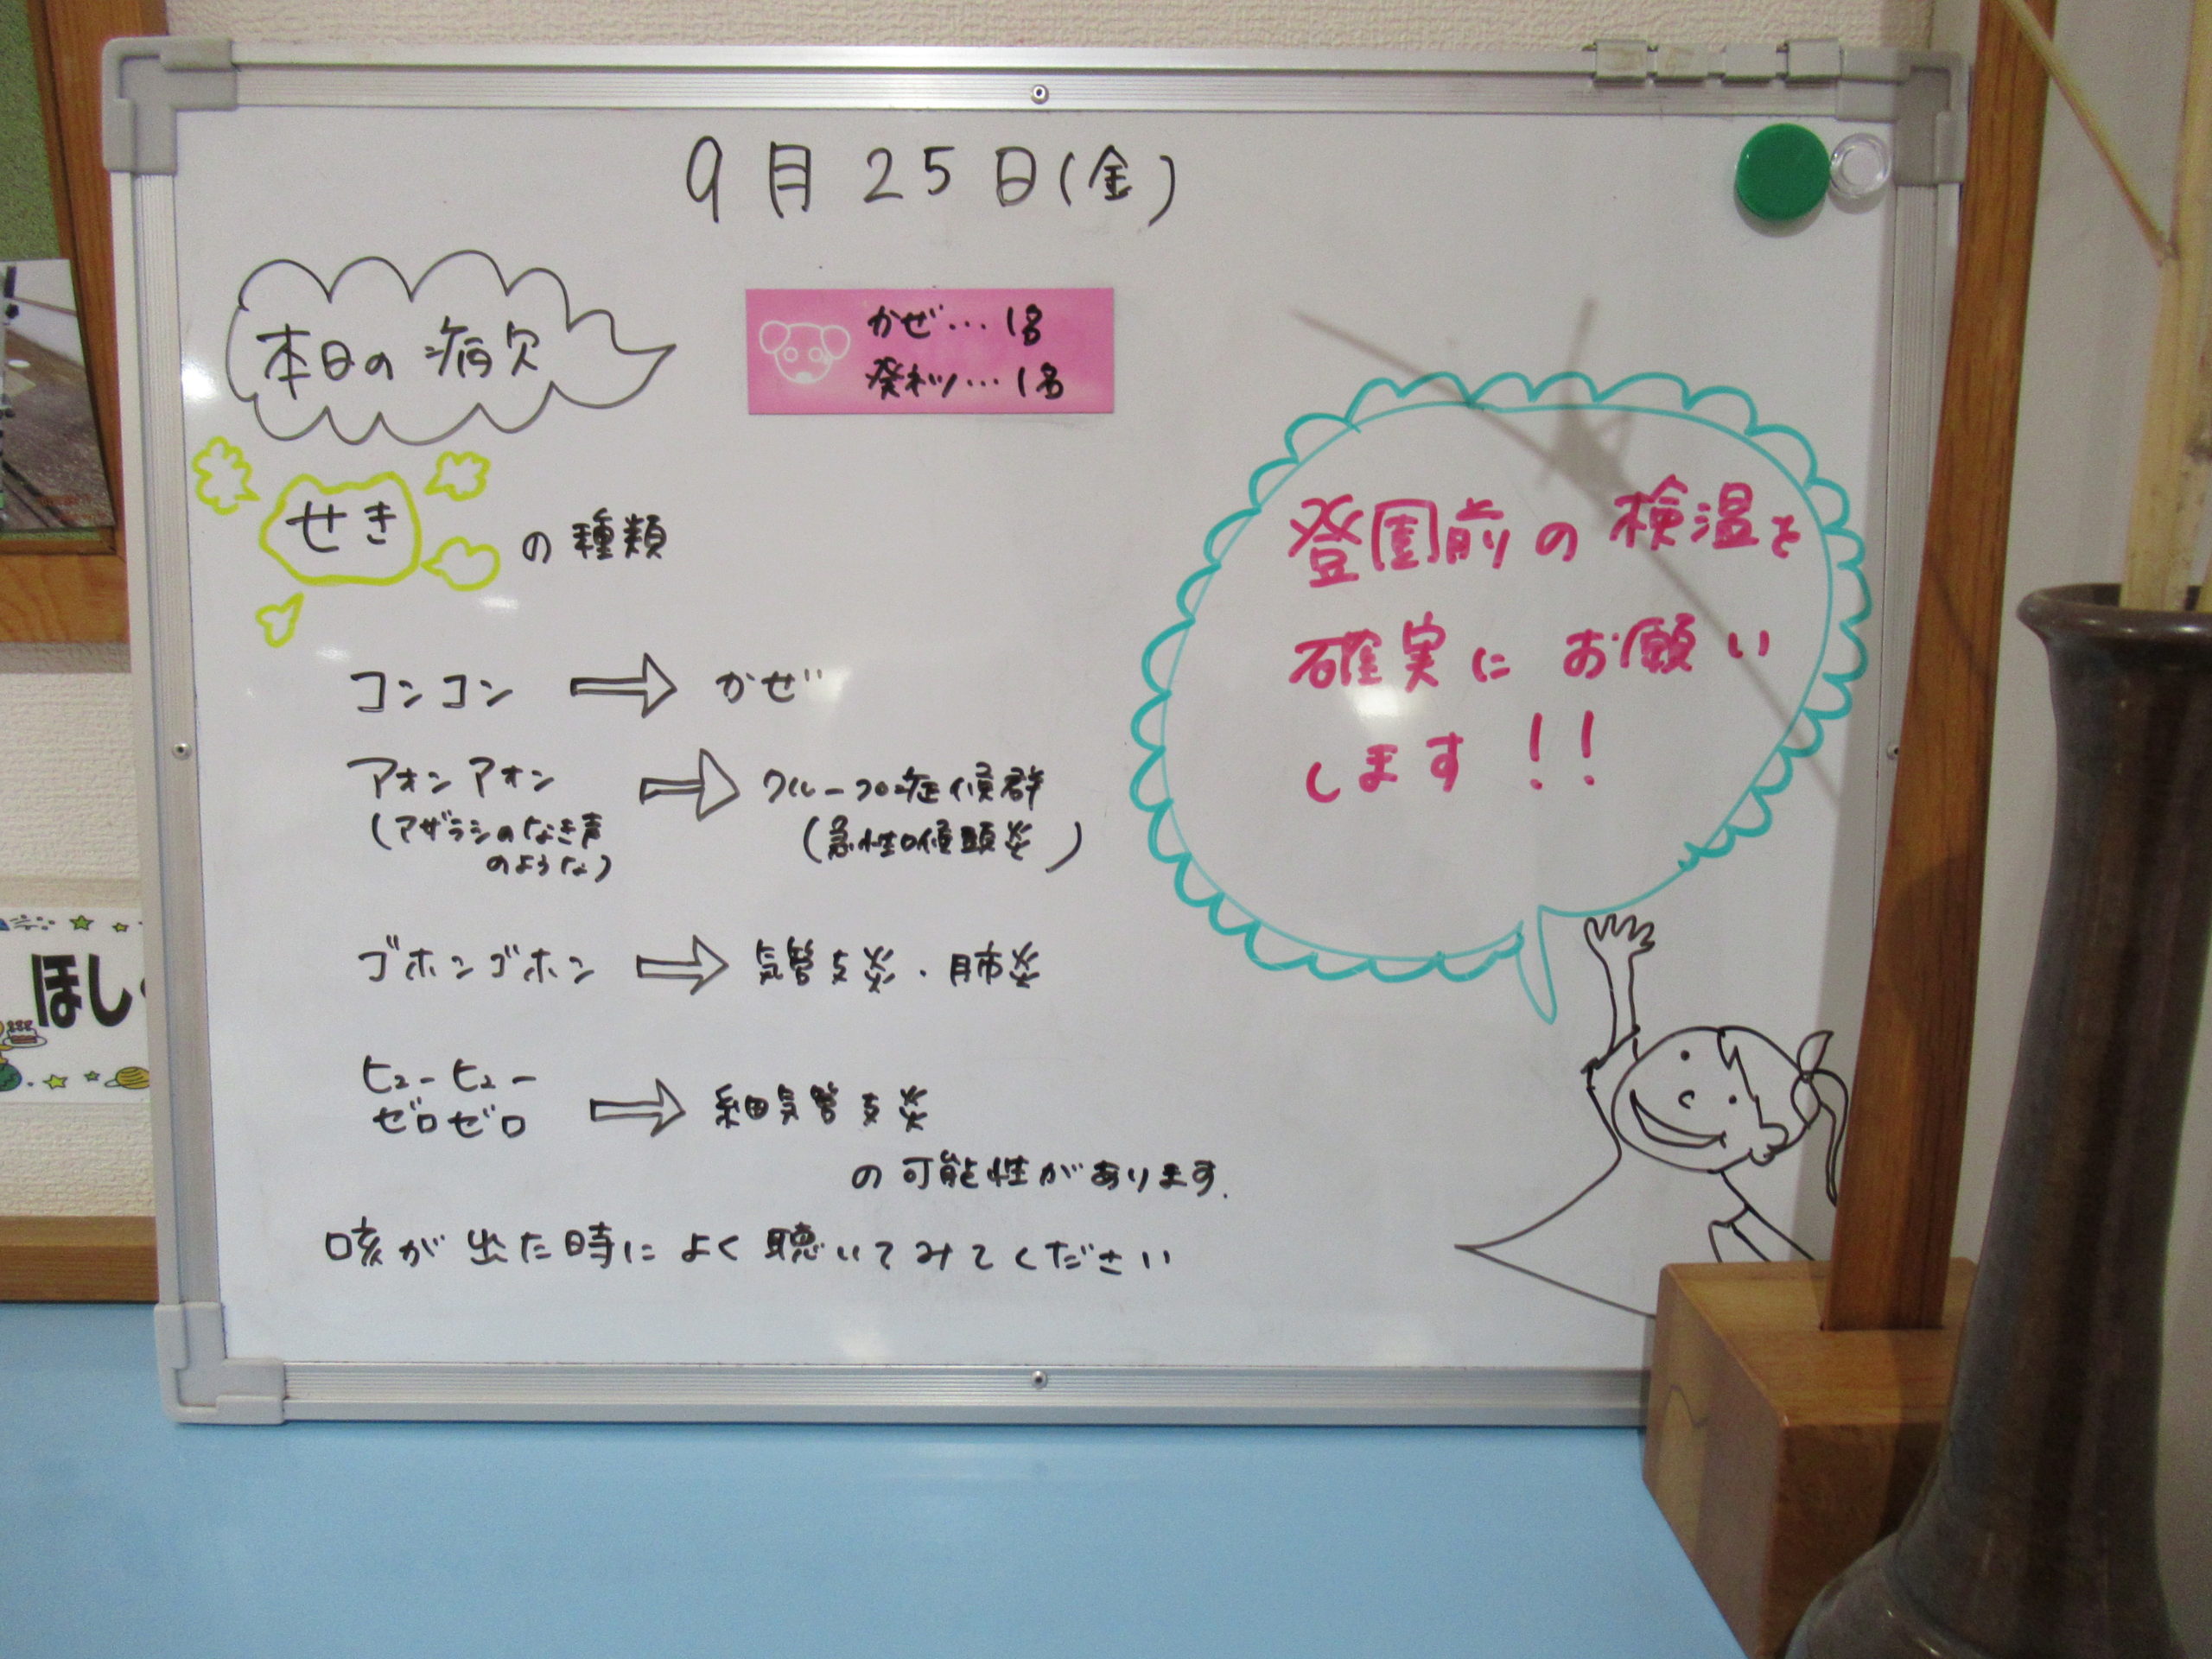 9月25日(金)
本日の病欠
かぜ…1名
発ネツ…1名
せきの種類
コンコン ⇒ かぜ
アオンアオン ⇒ クループ症候群
(アザラシのなき声
のような)
(急性喉頭炎)
ゴホンゴホン ⇒ 気管支炎・肺炎
ヒューヒュー
ゼロゼロ ⇒ 細気管支炎
の可能性があります.
咳が出た時によく聴いてみてください
登園前の検温を
確実にお願い
します!!
ほし